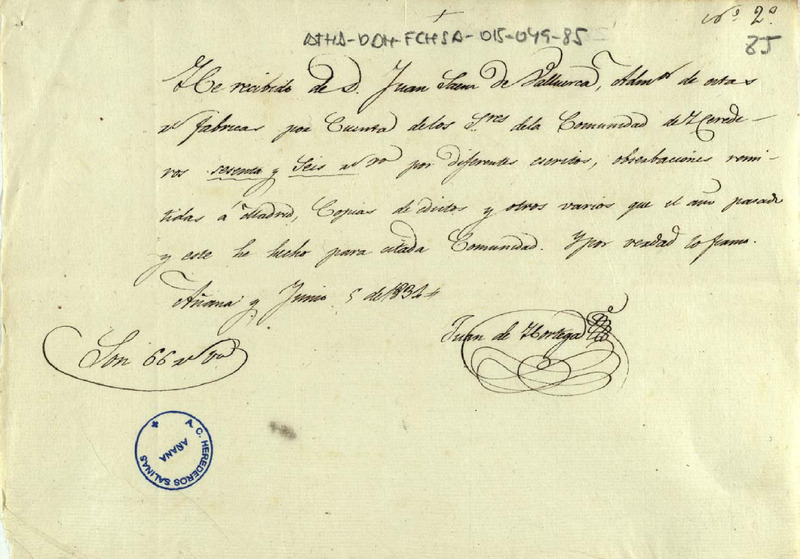 Nº 2º
ATHA-DAH-FCHSA-015-049-85
85
He recibido de D. Juan Saenz de Valluerca, Admor de estas
fabricas por Cuenta de los Sres de la Comunidad de Herede-
ros sesenta y Seis rs von por diferentes escritos, obserbaciones remi-
tidas á Madrid, Copias de edictos y otros varios que el año pasado
y este he hecho para citada Comunidad. Y por verdad lo firmo.
Añana y Junio 5 de 1834
Juan de Hortega
Son 66 rs von
A. C. HEREDEROS SALINAS
AÑANA